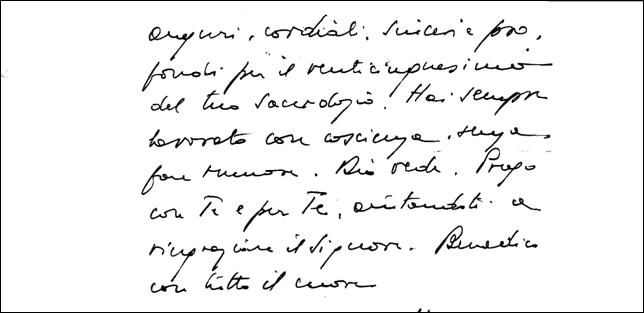 auguri, cordiali, sinceri e pro,
fondi per il venticinquesimo
del tuo Sacerdozio. Hai sempre
lavorato con coscienza, senza
fare rumore. Dio vede. Prego
con Te e per Te, aiutandoti a
ringraziare il Signore. Benedico
con tutto il cuore